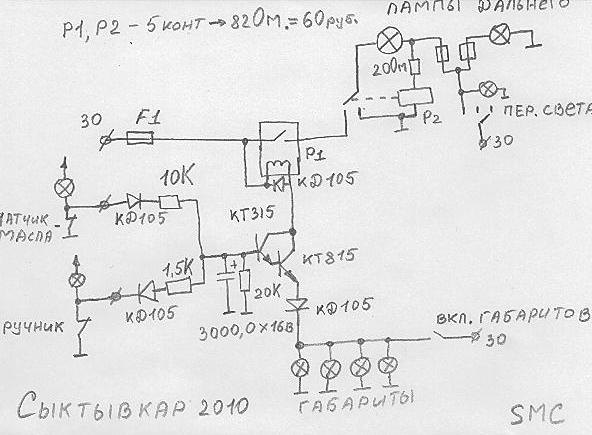 ЛАМПЫ ДАЛЬНЕГО
P1, P2 - 5 КОНТ → 82 ОМ. = 60 руб.
200М
30
F1
P2
ПЕР. СВЕТА
30
P1
КД105
10К
КД105
КТ315
ДАТЧИК
МАСЛА
КТ815
1,5К
20К
КД105
КД105
3000,0 × 16В
РУЧНИК
ВКЛ. ГАБАРИТОВ
30
ГАБАРИТЫ
СЫКТЫВКАР 2010
SMC